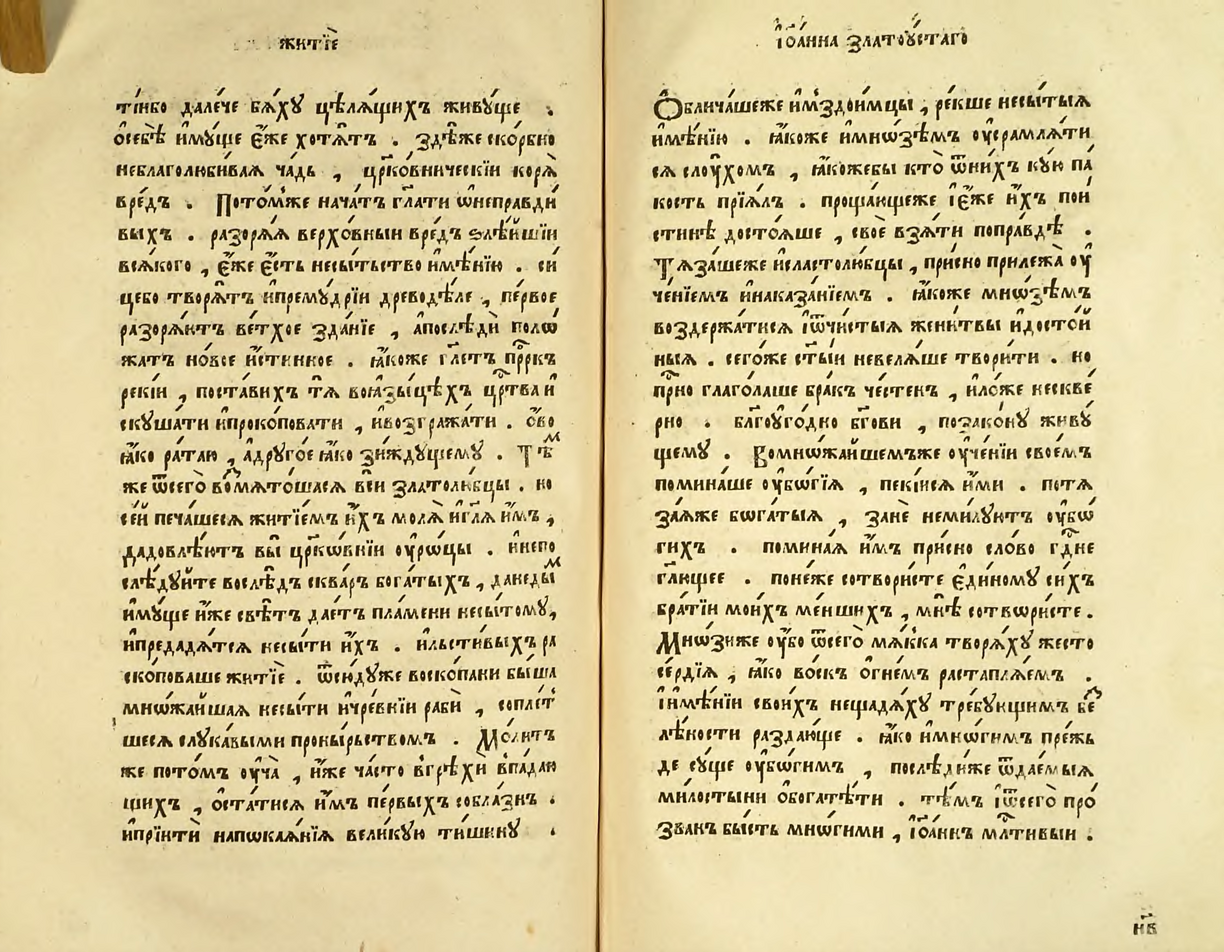 житїѐ
тїибо дале́че бѧ́хꙋ цѣлѧ́щихъ живꙋ́ще .
ѻсебѣ̀ и҆мꙋ́ще є҆́же хотѧ́тъ . здѣ́же ско́рбно
неблаголюби́ваѧ ча́дь , црⷪ҇ко́вническїи корѧ̀
вре́дъ . Пото́мже нача́тъ гл҃ати ѡ҆непра́вди
выхъ . разорѧ́ѧ верхо́вныи вре́дъ ѕлѣ́йшїи
всѧ́кого , є҆́же є҆́сть несы́тьство и҆мѣ́нїю . си́
цебо творѧ́тъ и҆премꙋ́дрїи древодѣ́ле , пе́рвое
разорѧ́ютъ ве́тхое зда́нїе , а҆послѣдѝ полѡ
жа́тъ но́вое и҆́стинное . ꙗ҆́коже гл҃етъ прⷪ҇ркъ
ре́кїи , поста́вихъ тѧ̀ воꙗ҆зы́цѣхъ црⷭ҇тва и҆
скꙋша́ти и҆прокопова́ти , и҆возгражда́ти . ѻ҆́во
ꙗ҆́ко рата́ю , а҆дрꙋго́е ꙗ҆́ко зи́ждꙋщемꙋ . Тѣ́ⷨ
же ѿсегѡ̀ во́мѧто́шасѧ всѝ златолю́бцы . но
се́й печа́шесѧ житїе́мъ и҆́хъ молѧ̀ и҆гл҃ѧ и҆̀мъ ,
дадовлѣ́ютъ вы̀ црⷪ҇ко́внїи ᲂу҆рѡ́цы . и҆непо
слѣ́дꙋйте восле́дъ сква́ръ бога́тыхъ , данеды́ⷨ
и҆мꙋ́ще и҆́же свѣ́тъ дае́тъ пла́мени несы́томꙋ,
и҆предадѧ́тсѧ несы́ти и҆́хъ . и҆льсти́выхъ ра
скопова́ше житїѐ . ѿсю́дꙋже воско́пани бы́ша
мнѡжа́йшаѧ несы́ти и҆чре́внїи рабѝ , сопле́т
шесѧ слꙋка́выми проны́рьствомъ . Мо́литъ
же пото́мъ ᲂу҆ча̀ , и҆́же ча́сто вгрѣхѝ впа́даю
щихъ , ѻ҆ста́тисѧ и҆́мъ пе́рвыхъ собла́знъ .
и҆прїитѝ напѡкаѧ́нїѧ вели́кꙋю тишинꙋ̀ .
і҆ѻ҆а́нна златоꙋ́стагѡ
Ѻ҆блича́шеже и҆мздои́мцы , ре́кше несы́тыѧ
и҆мѣ́нїю . ꙗ҆́коже и҆мнѡ́зѣмъ ᲂу҆срамлѧ́ти
сѧ слꙋ́хомъ , ꙗ҆́кожебы кто̀ ѿни́хъ кꙋ́ю па́
кость прїѧ́лъ . проща́ющеже і҆є҆́же и҆́хъ пои́
стинѣ достоѧ́ше , своѐ взѧ́ти попра́вдѣ .
Тѧза́шеже и҆сластолю́бцы , при́сно прилежа̀ ᲂу҆
че́нїемъ и҆наказа́нїемъ . ꙗ҆́коже мнѡ́зѣмъ
воздержа́тисѧ і҆ѿчи́стыѧ жени́твы и҆досто́й
ныѧ . сегѡ́же ст҃ы́и невелѧ́ше твори́ти . но
прⷭ҇но глаго́лаше бра́къ че́стенъ , и҆ло́же нескве́
рно . бл҃гоꙋго́дно бг҃ови , позако́нꙋ живꙋ́
щемꙋ . Вомнѡжа́йшемъже ᲂу҆че́нїи свое́мъ
помина́ше ᲂу҆бѡ́гїѧ , пекїисѧ и҆́ми . потѧ
за́ѧже бѡга́тыѧ , занѐ неми́лꙋютъ ᲂу҆бѡ́
гихъ . помина́ѧ и҆́мъ при́сно сло́во гдⷭ҇не
гл҃ющее . поне́же сотвори́сте є҆ди́номꙋ си́хъ
бра́тїи мои́хъ ме́ншихъ , мнѣ̀ сотвѡри́сте .
Мнѡ́зиже ᲂу҆̀бо ѿсегѡ̀ мѧ́кка творѧ́хꙋ жесто
се́рдїѧ , ꙗ҆́ко во́скъ ѻ҆гне́мъ растаплѧ́емъ .
і҆имѣ́нїи свои́хъ нещадѧ́хꙋ тре́бꙋющимъ беⷥ
лѣ́ности раздаю́ще . ꙗ҆́ко и҆мнѡ́гимъ пре́жь
де сꙋ́ще ᲂу҆бѡ́гимъ , послѣди́же ѿдае́мыѧ
ми́лостыни ѻ҆богатѣ́ти . тѣ́мъ і҆ѿсегѡ̀ про
зва́нъ бы́сть мнѡ́гими , і҆ѻ҆а́ннъ млⷭ҇тивыи .
н҃в